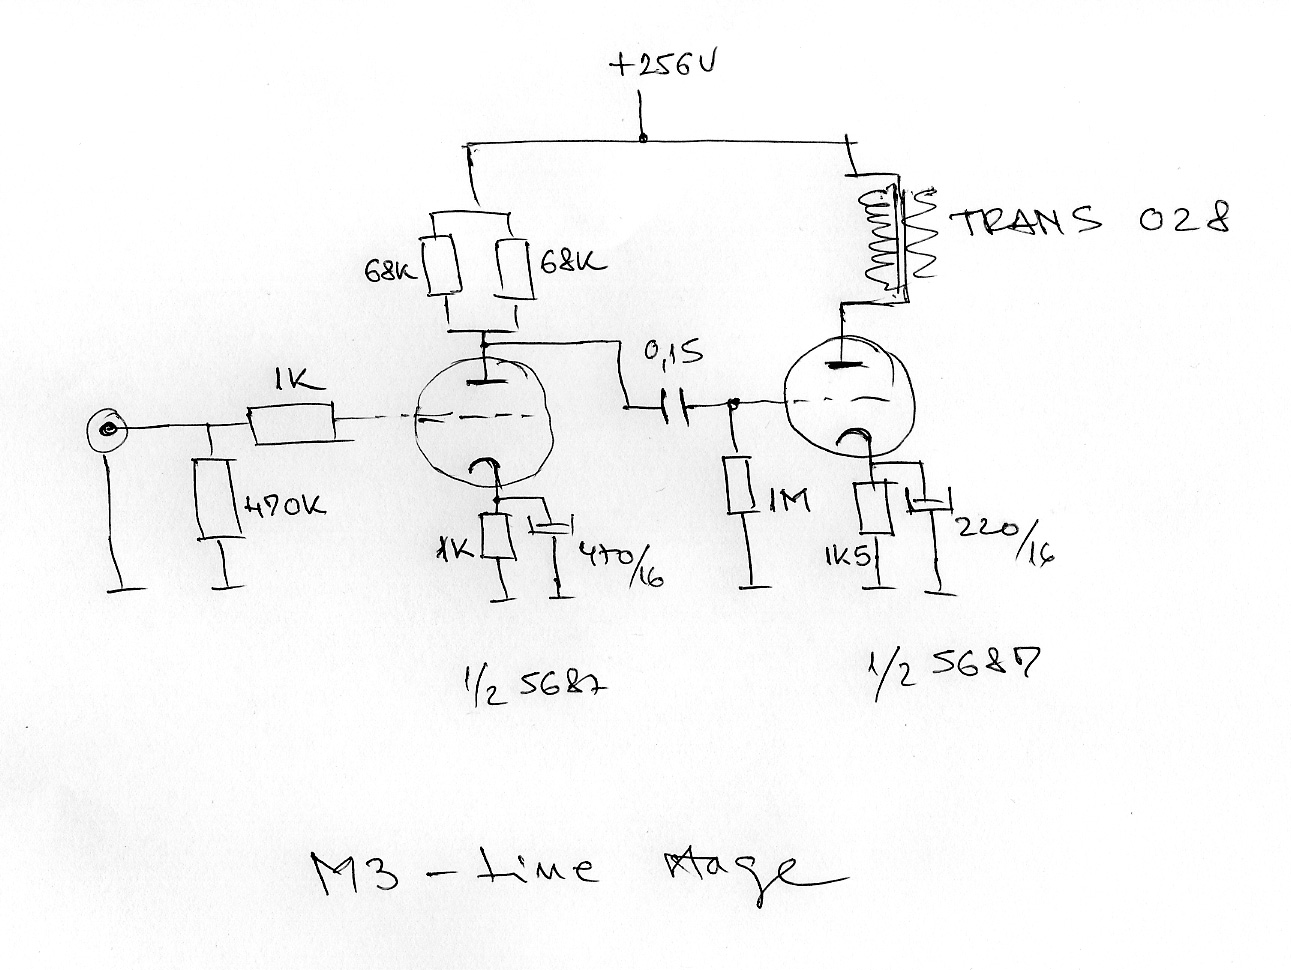 +256V
TRANS 028
68K
68K
0,15
1K
470K
1M
1K
470/16
1K5
220/16
1/2 5687
1/2 5687
M3 - Line stage